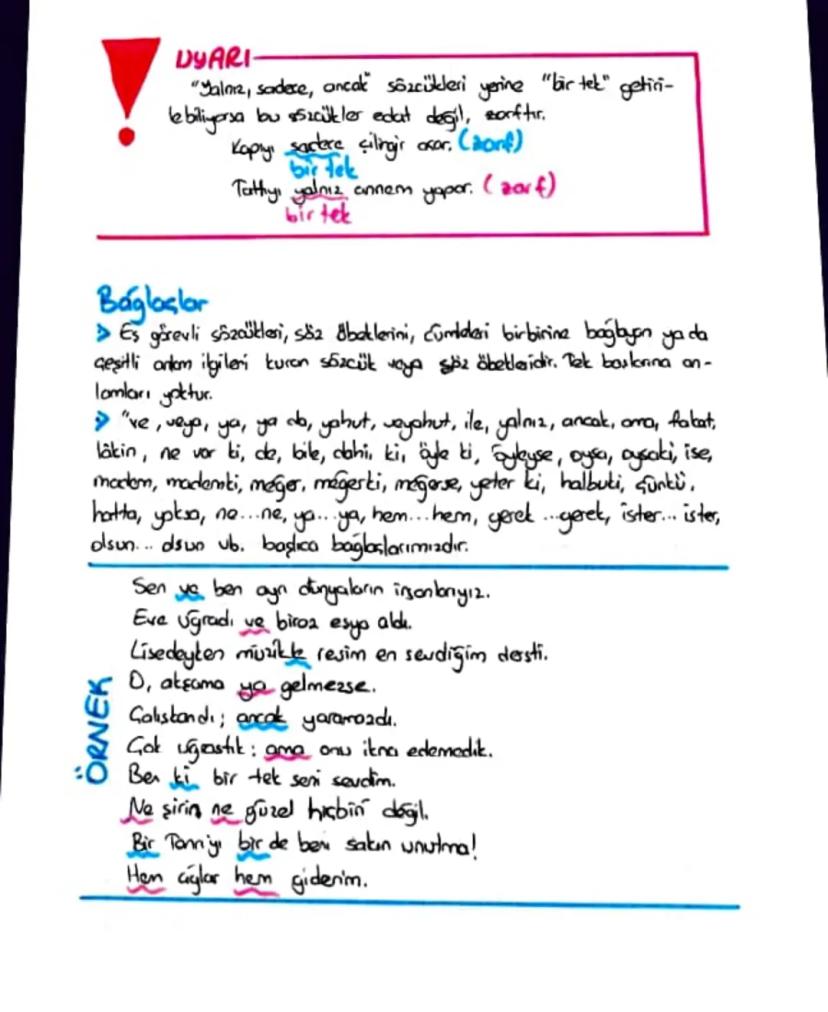 UYARI
"Yalnız, sadece, ancak" sözcükleri yerine "bir tek" getiri-
lebiliyorsa bu sözcükler edat değil, zarftır.
Kapıyı sadece çilingir açar. (zarf)
bir tek
Tatlıyı yalnız annem yapar. (zarf)
bir tek
Bağlaçlar
> Eş görevli sözcükleri, söz öbeklerini, cümleleri birbirine bağlayan ya da
çeşitli anlam ilgileri kuran sözcük veya söz öbekleridir. Tek başlarına an-
lamları yoktur.
> "ve, veya, ya, ya da, yahut, veyahut, ile, yalnız, ancak, ama, fakat,
lâkin, ne var ki, de, bile, dahi, ki, öyle ki, öyleyse, oysa, oysaki, ise,
madem, mademki, meğer, meğerki, meğerse, yeter ki, halbuki, çünkü,
hatta, yoksa, ne...ne, ya...ya, hem...hem, gerek...gerek, ister...ister,
olsun...olsun vb. başlıca bağlaçlarımızdır.
ÖRNEK
Sen ve ben ayrı dünyaların insanlarıyız.
Eve uğradı ve biraz eşya aldı.
Lisedeyken müzikle resim en sevdiğim dersti.
O, akşama ya gelmezse.
Çalışkandı; ancak yaramazdı.
Çok uğraştık: ama onu ikna edemedik.
Ben ki bir tek seni sevdim.
Ne şirin ne güzel hiçbiri değil.
Bir Tanrı'yı bir de beni sakın unutma!
Hem ağlar hem giderim.